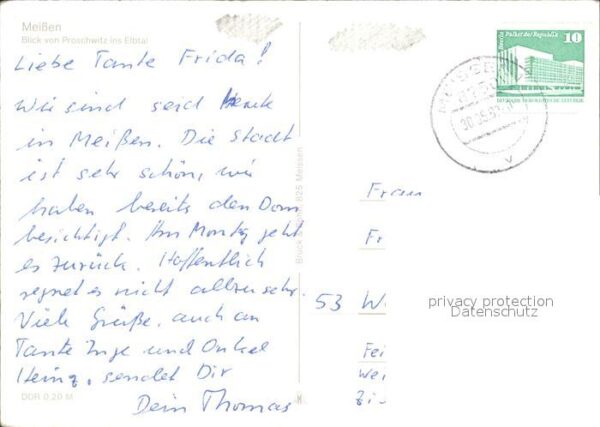 Meißen
Blick von Proschwitz ins Elbtal
Liebe Tante Frida!
Wir sind seid heute
in Meißen. Die Stadt
ist sehr schön, wir
haben bereits den Dom
besichtigt. Am Montag geht
es zurück. Hoffentlich
regnet es nicht allzu sehr.
Viele Grüße, auch an
Tante Inge und Onkel
Heinz, sendet Dir
Dein Thomas
DDR 0,20 M
Berlin Palast der Republik
10
Frau
Fr
53 W
privacy protection
Datenschutz
Fei
Wei